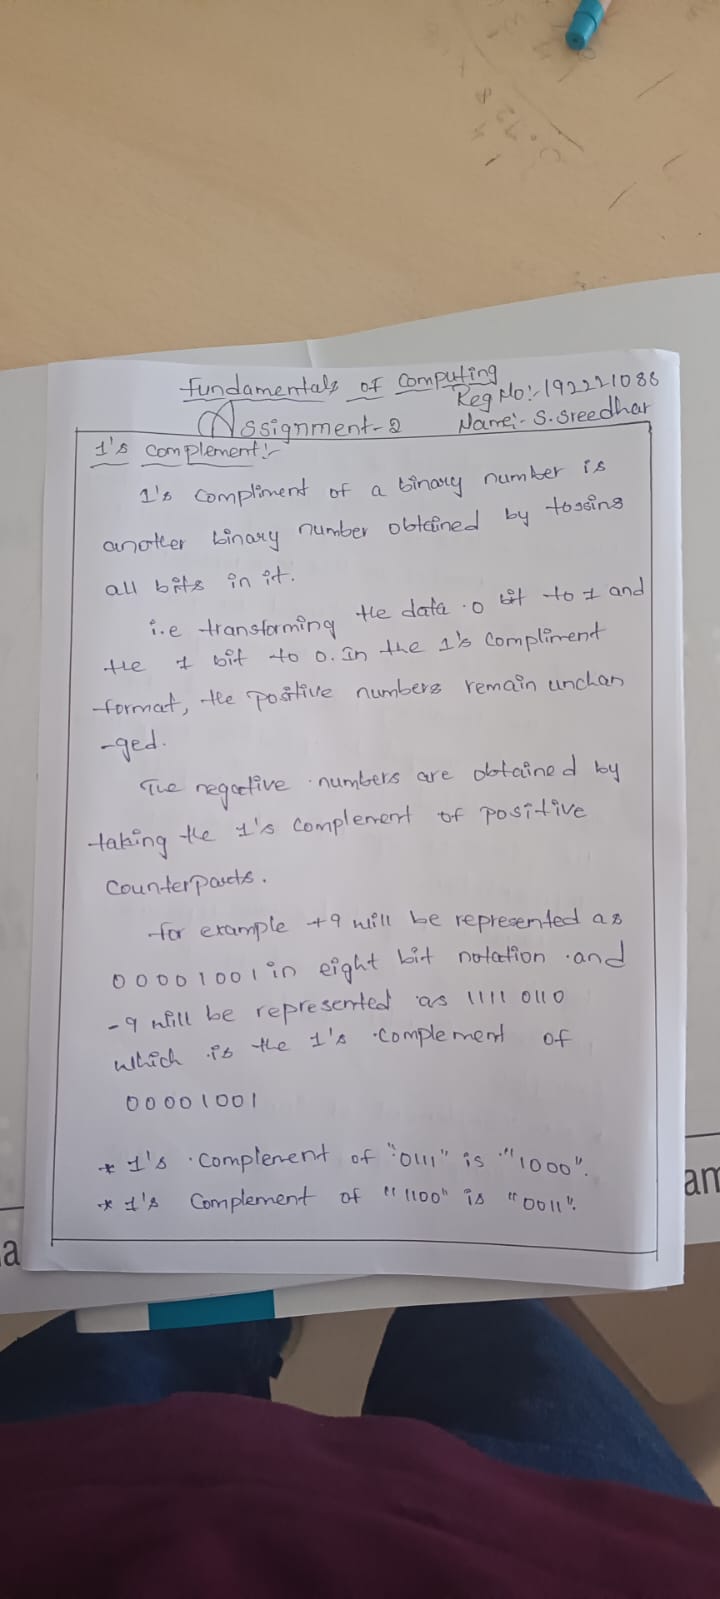 Fundamentals of Computing
Reg No:-192221088
Assignment-2
Name:- S. Sreedhar
1's complement:-
1's compliment of a binary number is
another binary number obtained by tossing
all bits in it.
i.e transforming the data 0 bit to 1 and
the 1 bit to 0. In the 1's compliment
format, the positive numbers remain unchan
-ged.
The negative numbers are obtained by
taking the 1's complement of positive
counterparts.
for example +9 will be represented as
00001001 in eight bit notation and
-9 will be represented as 1111 0110
which is the 1's complement of
00001001
* 1's complement of "0111" is "1000".
* 1's complement of "1100" is "0011".
am
a